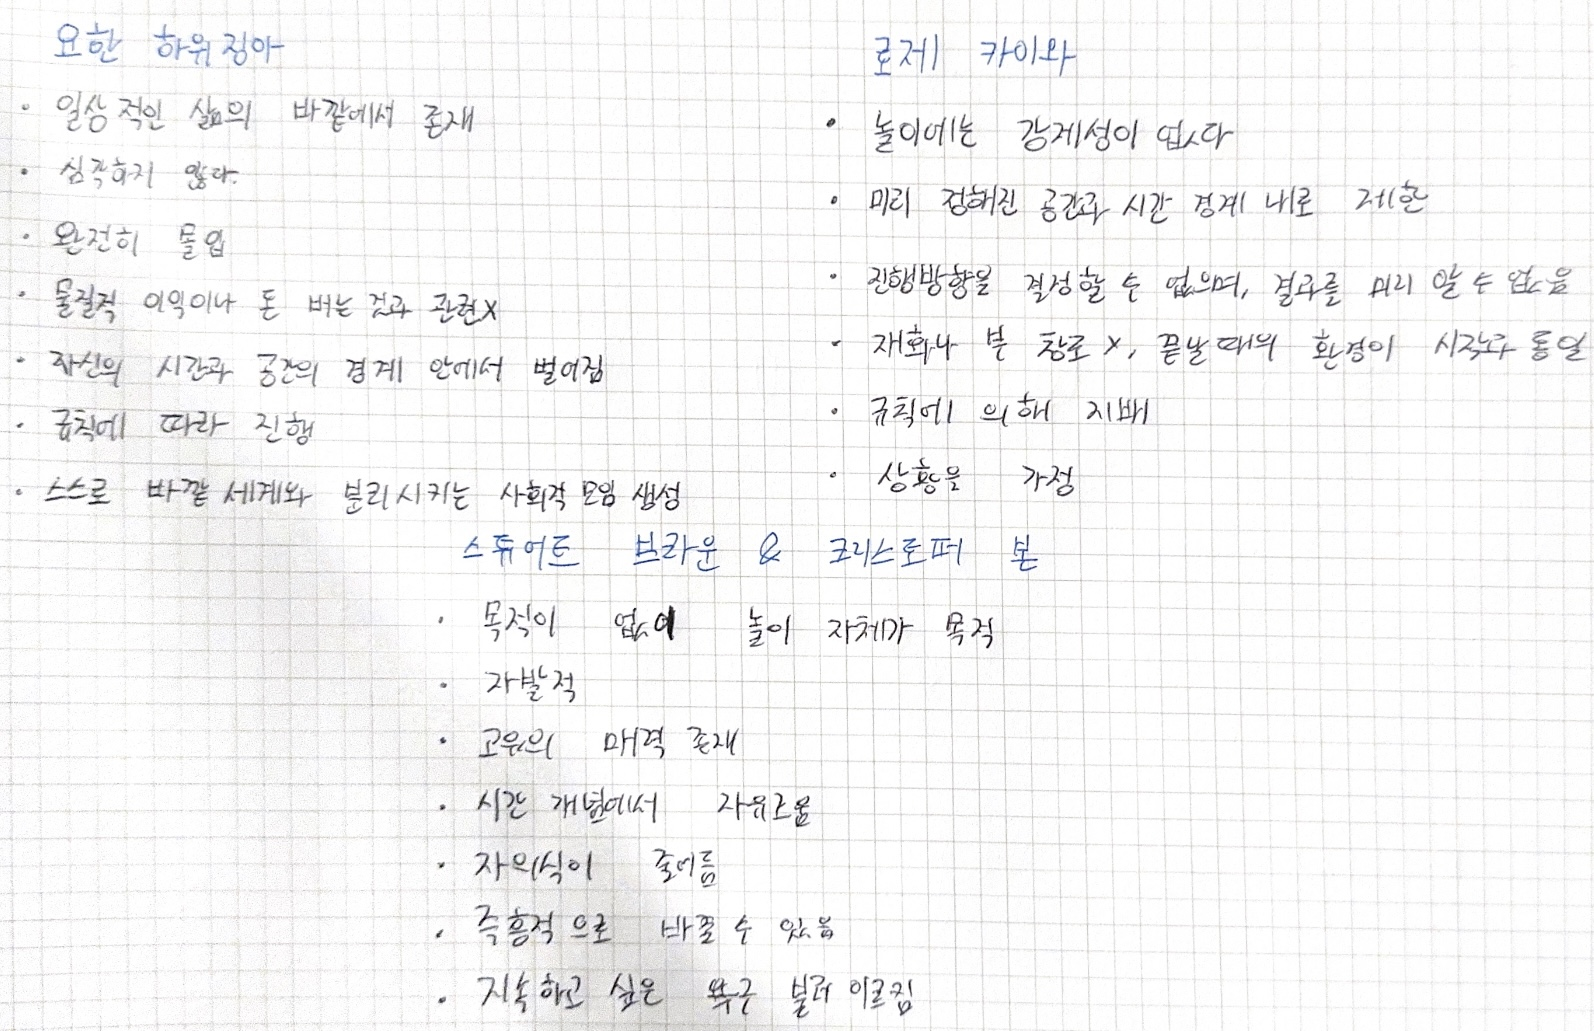 요한 하위징아
· 일상적인 삶의 바깥에서 존재
· 심각하지 않다.
· 완전히 몰입
· 물질적 이익이나 돈 버는 것과 관련X
· 자신의 시간과 공간의 경계 안에서 벌어짐
· 규칙에 따라 진행
· 스스로 바깥 세계와 분리시키는 사회적 모임 생성
로제 카이와
· 놀이에는 강제성이 없다
· 미리 정해진 공간과 시간 경계 내로 제한
· 진행방향을 결정할 수 없으며, 결과를 미리 알 수 없음
· 재화나 부 창조 X, 끝날때의 환경이 시작과 동일
· 규칙에 의해 지배
· 상황을 가정
스튜어트 브라운 & 크리스토퍼 본
· 목적이 없이 놀이 자체가 목적
· 자발적
· 고유의 매력 존재
· 시간 개념에서 자유로움
· 자의식이 줄어듬
· 즉흥적으로 바꿀 수 있음
· 지속하고 싶은 욕구 불러 이르킴